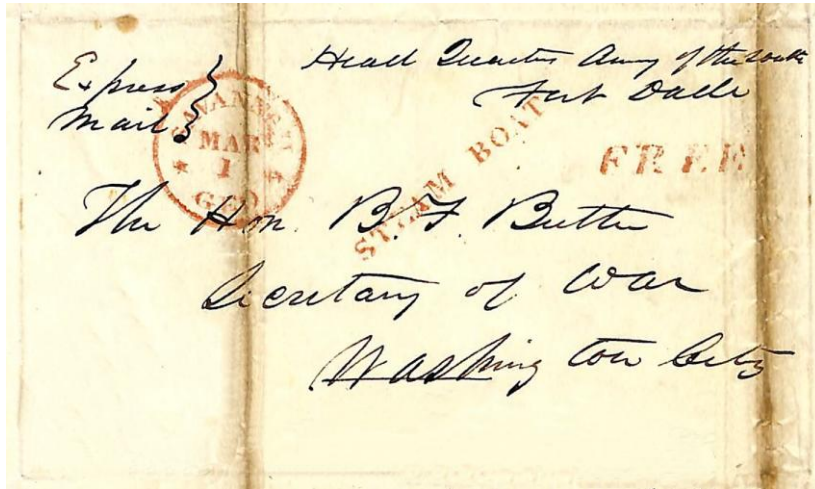 Express }
Mail }
Head Quarters Army of the South
Fort Dade
SAVANNAH
MAR
1
GEO
STEAM BOAT
FREE
The Hon. B. F. Butler
Secretary of War
Washington City